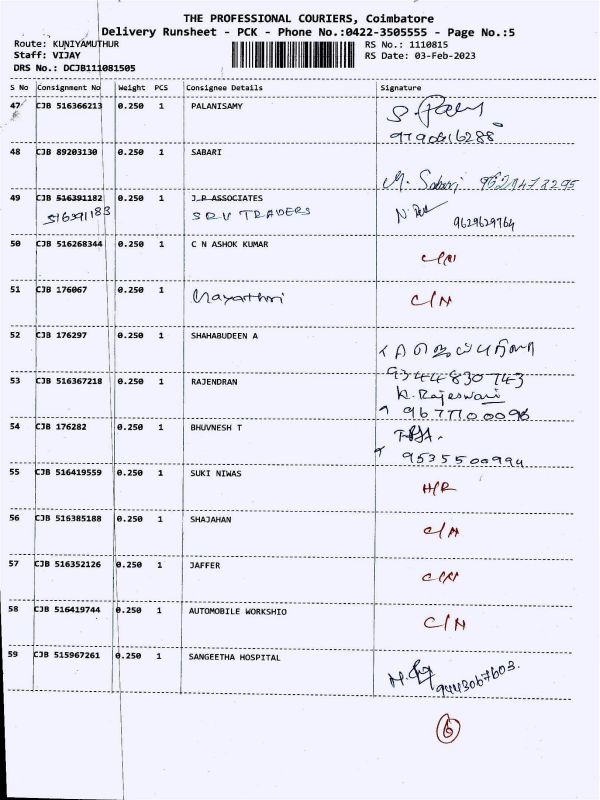 THE PROFESSIONAL COURIERS, Coimbatore
Delivery Runsheet - PCK - Phone No.:0422-3505555 - Page No.:5
Route: KUNIYAMUTHUR RS No.: 1110815
Staff: VIJAY RS Date: 03-Feb-2023
DRS No.: DCJB111081505
S No Consignment No Weight PCS Consignee Details Signature
47 CJB 516366213 0.250 1 PALANISAMY
48 CJB 89203130 0.250 1 SABARI
M. Sabari
49 CJB 516391182 0.250 1 J R ASSOCIATES
516391183 SRV TRADERS 9629629764
50 CJB 516268344 0.250 1 C N ASHOK KUMAR
C/N
51 CJB 176067 0.250 1 C/N
52 CJB 176297 0.250 1 SHAHABUDEEN A
9344830743
53 CJB 516367218 0.250 1 RAJENDRAN K. Rajeswari
9677100096
54 CJB 176282 0.250 1 BHUVNESH T
9535500994
55 CJB 516419559 0.250 1 SUKI NIWAS
H/R
56 CJB 516385188 0.250 1 SHAJAHAN
C/N
57 CJB 516352126 0.250 1 JAFFER
C/N
58 CJB 516419744 0.250 1 AUTOMOBILE WORKSHIO
C/N
59 CJB 515967261 0.250 1 SANGEETHA HOSPITAL
9443067603.
6